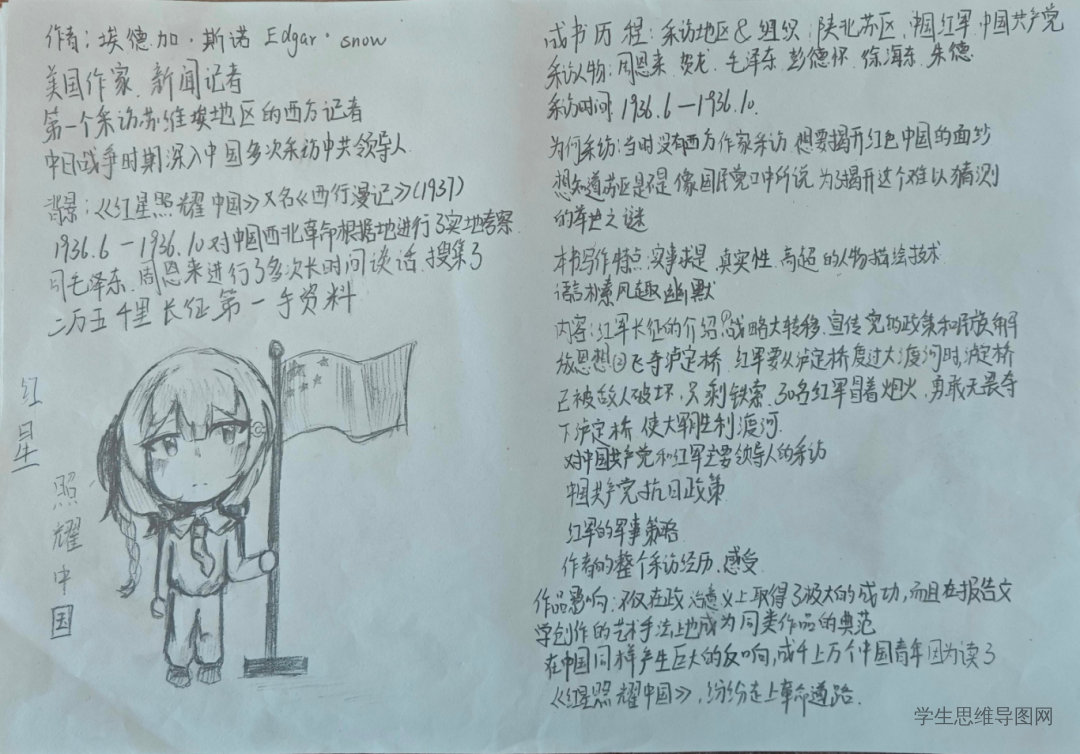 作者：埃德加·斯诺 Edgar·snow
美国作家 新闻记者
第一个采访苏维埃地区的西方记者
中日战争时期深入中国多次采访中共领导人
背景：《红星照耀中国》又名《西行漫记》(1937)
1936.6—1936.10对中国西北革命根据地进行了实地考察
同毛泽东、周恩来进行了多次长时间谈话、搜集了
二万五千里长征第一手资料
红星
照耀中国
成书历程：采访地区&组织：陕北苏区、中国红军、中国共产党
采访人物：周恩来、贺龙、毛泽东、彭德怀、徐海东、朱德
采访时间 1936.6—1936.10.
为何采访：当时没有西方作家采访 想要揭开红色中国的面纱
想知道苏区是不是像国民党口中所说 为了揭开这个难以猜测
的革世之谜
本书写作特点：实事求是、真实性、高超的人物描绘技术
语言朴素风趣幽默
内容：红军长征的介绍①战略大转移、宣传党的政策和民族解
放思想②飞夺泸定桥 红军要从泸定桥度过大渡河时，泸定桥
已被敌人破坏，只剩铁索、30名红军冒着炮火，勇敢无畏夺
下泸定桥 使大军胜利渡河.
对中国共产党和红军主要领导人的采访
中国共产党抗日政策
红军的军事策略
作者的整个采访经历、感受
作品影响：不仅在政治意义上取得了极大的成功，而且在报告文
学创作的艺术手法上也成为同类作品的典范
在中国同样产生巨大的反响，成千上万个中国青年因为读了
《红星照耀中国》，纷纷走上革命道路.
学生思维导图网